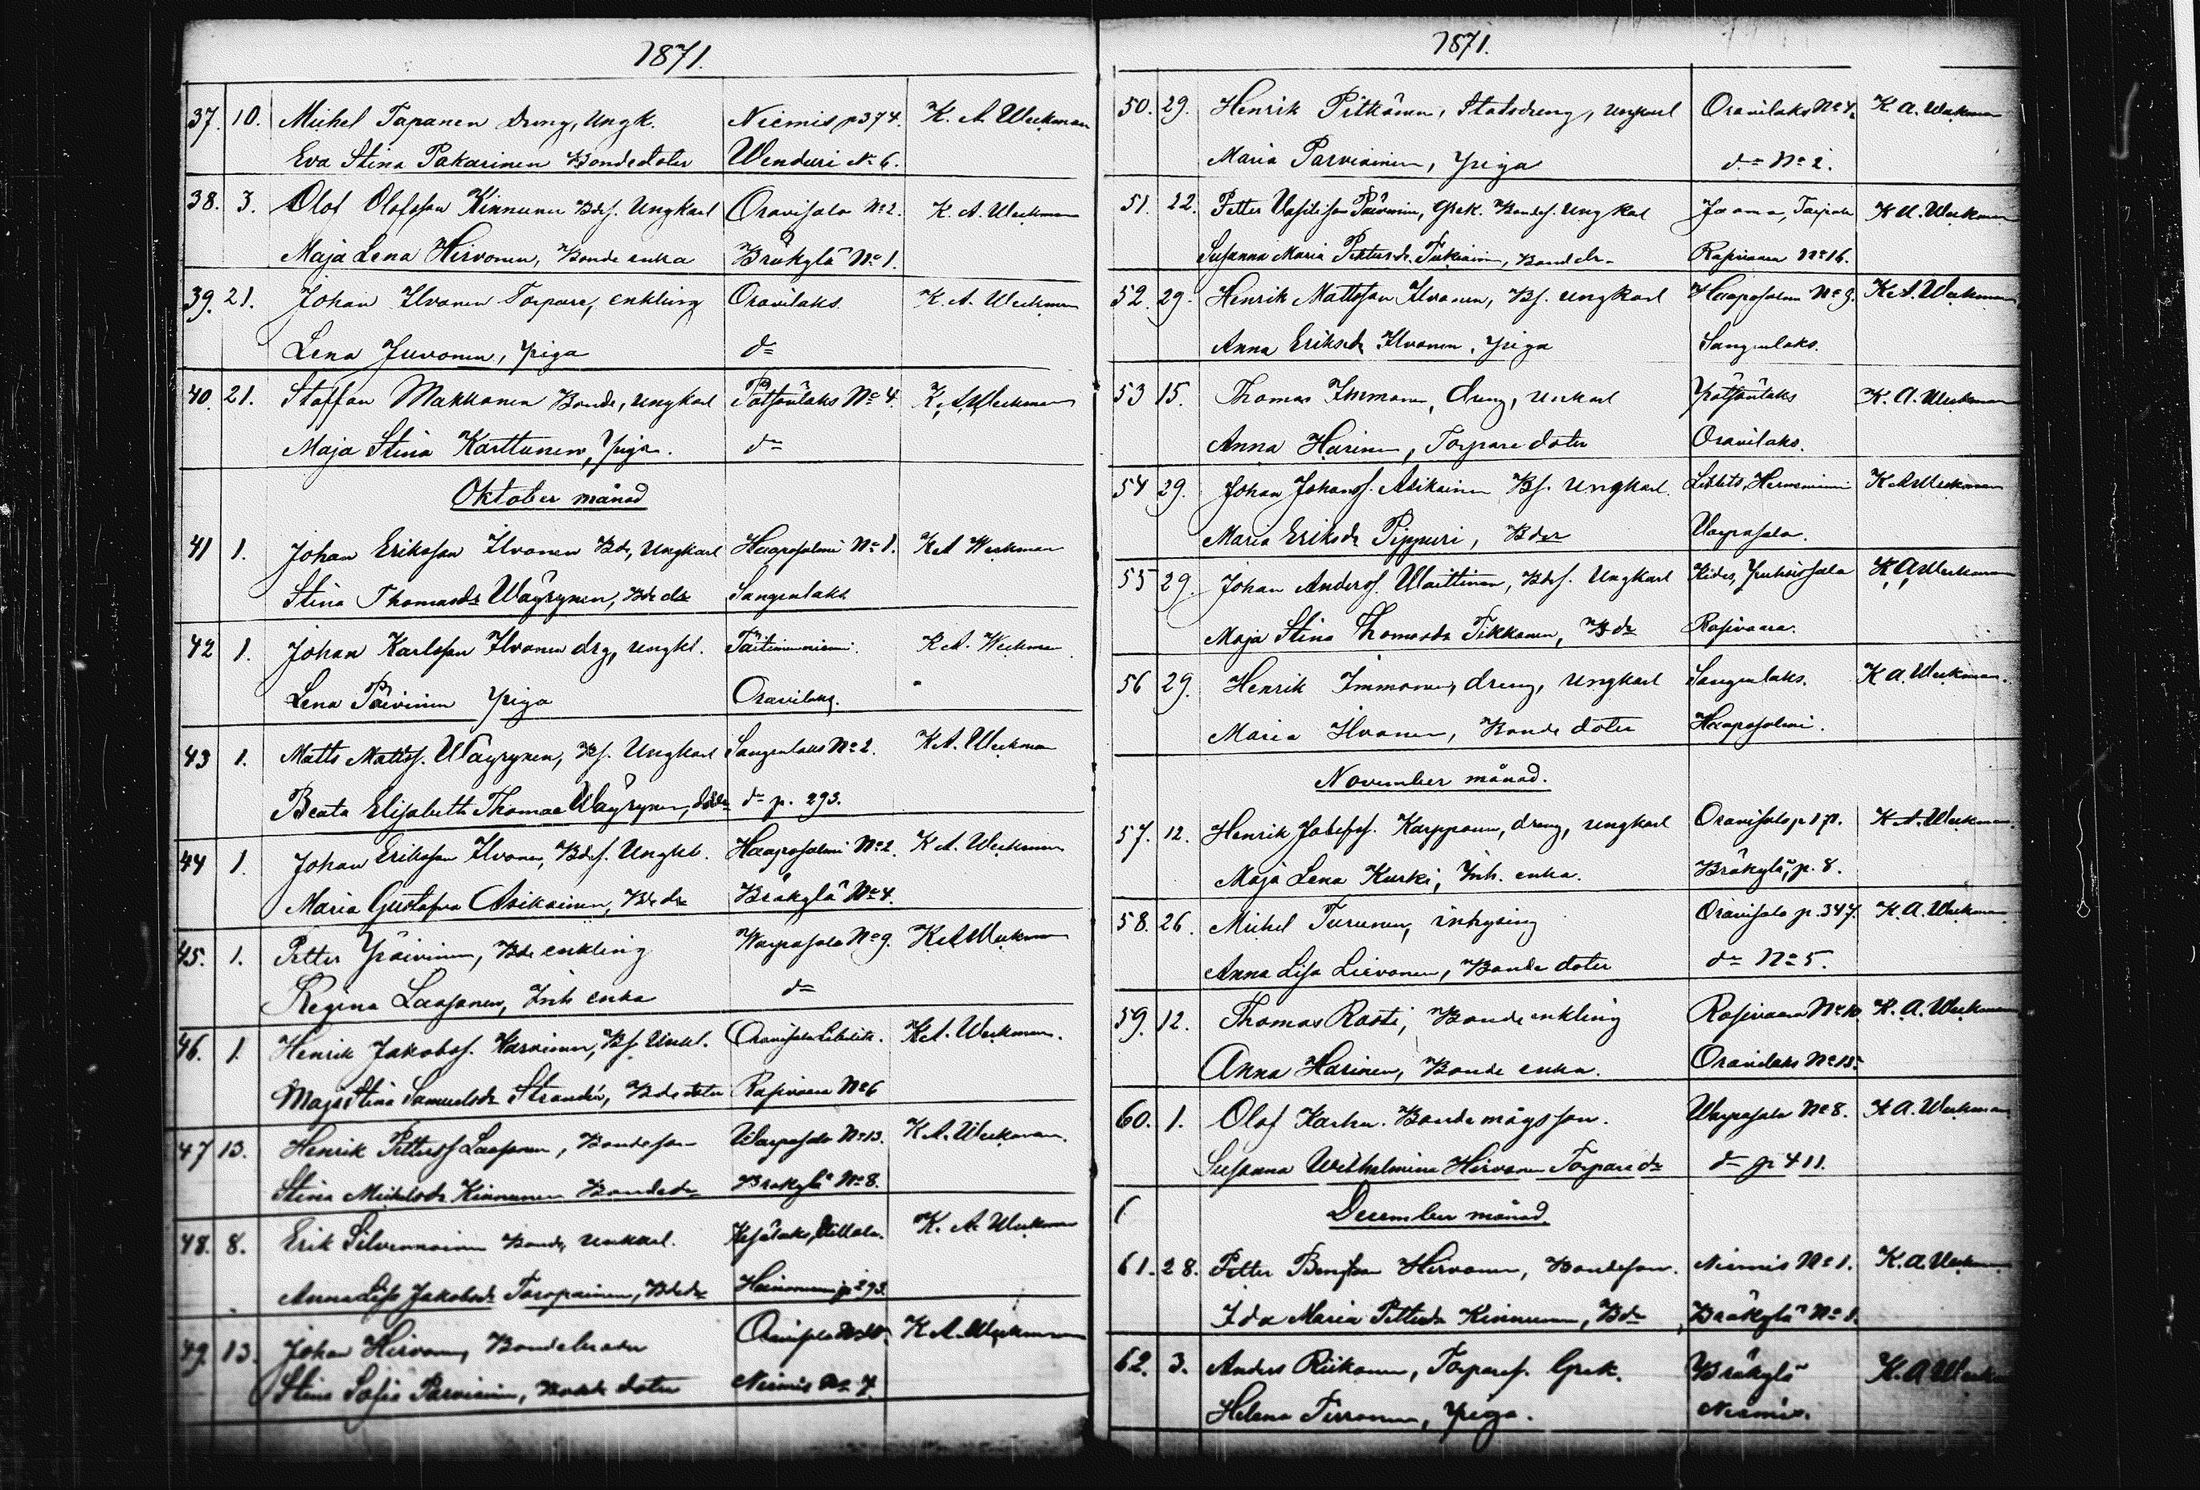 1871.
37. 10. Michel Tapanen dreng, Ungk. Niemis p 374. K. A. Weckman
Eva Stina Pakarinen Bondedoter Wenduri No 6.
38. 3. Olof Olofsson Kinnunen Bdes. Ungkarl Oravisalo No 2. K. A. Weckman
Maja Lena Hirvonen, Bonde enka Bråkylä No 1.
39. 21. Johan Ilvonen Torpare, enkling Oravilaks. K. A. Weckman
Lena Juvonen, piga do
40. 21. Staffan Makkonen Bonde, ungkarl Pötsönlaks No 4. K. A. Weckman
Maja Stina Karttunen, piga. do
Oktober månad
41 1. Johan Eriksson Ilvonen Bds, Ungkarl Haaposalmi No 1. K A Weckman
Stina Thomasdr Wäyrynen, Bde dr Sangenlaks
42 1. Johan Karlsson Ilvonen drg, ungkl. K. A. Weckman
Lena Päivinen piga Oravilaks.
43 1. Matts Mattss. Wäyrynen, Bs. Ungkarl Sangenlaks No 2. K. A. Weckman
Beata Elisabeth Thomae Wäyrynen, do p. 293.
44 1. Johan Eriksson Ilvonen, Bdes. Ungkl. Haaposalmi No 2. K A. Weckman
Maria Gustafva Asikainen, Bde dr Bråkylä No 4.
45. 1. Petter Päivinen, Bde enkling Warpasalo No 9. K A Weckman
Regina Laasonen, Inh enka do
46. 1. Henrik Jakobss. Karvinen, Bs. Unkl. Oravisalo Libelits. K. A. Weckman.
Maja Stina Samuelsdr Strandén, Bde doter Rasivaara No 6
47 13. Henrik Petterss Laasonen, Bondeson Warpasalo No 13. K. A. Weckman.
Stina Michelsdr Kinnunen Bondedr Bråkylä No 8.
48. 8. Erik Silvennoinen Bonde, unkarl. K. A. Weckman
Anna Lisa Jakobsdr Toropainen, Bdedr p 293.
49. 13. Johan Hirvonen, Bondebroder K A. Weckman
Stina Sofia Parviainen, Bonde doter Niemis No 7.
1871.
50. 29. Henrik Pitkänen, Statsdreng, ungkarl Oravilaks No 4. K. A. Weckman
Maria Parviainen, piga do No 2.
51. 22. Petter Vasilison Päivinen, Grek. Bondes. Ungkarl K A. Weckman
Susanna Maria Pettersdr. Tiikainen, Bondedr. Rasivaara No 16.
52. 29. Henrik Mattsson Ilvonen, Bs. ungkarl Haaposalmi No 9. K. A. Weckman
Anna Eriksdr Ilvonen, piga Sangenlaks.
53 15. Thomas Immonen, dreng, unkarl Pötsönlaks K. A. Weckman
Anna Harinen, Torpare doter Oravilaks.
54 29. Johan Johanss. Asikainen Bs. Ungkarl. K A Weckman
Maria Eriksdr Pippuri, Bdr Varpasalo.
55 29. Johan Anderss. Waittinen, Bdes. Ungkarl Kides, Puhossalo K. A. Weckman
Maja Stina Thomasdr Tikkanen, Bdr Rasivaara.
56 29. Henrik Immonen, dreng, ungkarl Sangenlaks. K A. Weckman.
Maria Ilvonen, Bonde doter Haaposalmi.
November månad.
57. 12. Henrik Josefss. Karppanen, dreng, ungkarl Oravisalo p 171. K A. Weckman.
Maja Lena Kurki, Inh. enka. Bråkylä, p. 8.
58. 26. Michel Turunen, inhysing Oravisalo p. 347. K. A. Weckman
Anna Lisa Liivonen, Bonde doter do No 5.
59. 12. Thomas Rasti, Bonde enkling Rasivaara No 10 K. A. Weckman
Anna Harinen, Bonde enka. Oravilaks No 15.
60. 1. Olof Karhu. Bonde mågsson. Warpasalo No 8. K A. Weckman
Susanna Wilhelmina Hirvonen Torparedr do p 411.
December månad.
61. 28. Petter Bengtson Hirvonen, Bondeson. Niemis No 1. K. A. Weckman
Ida Maria Pettersdr Kinnunen, Bdr Bråkylä No 1.
62. 3. Anders Riikonen, Torpares. Grek. Bråkylä K. A Weckman
Helena Pirronen, piga. Niemis.